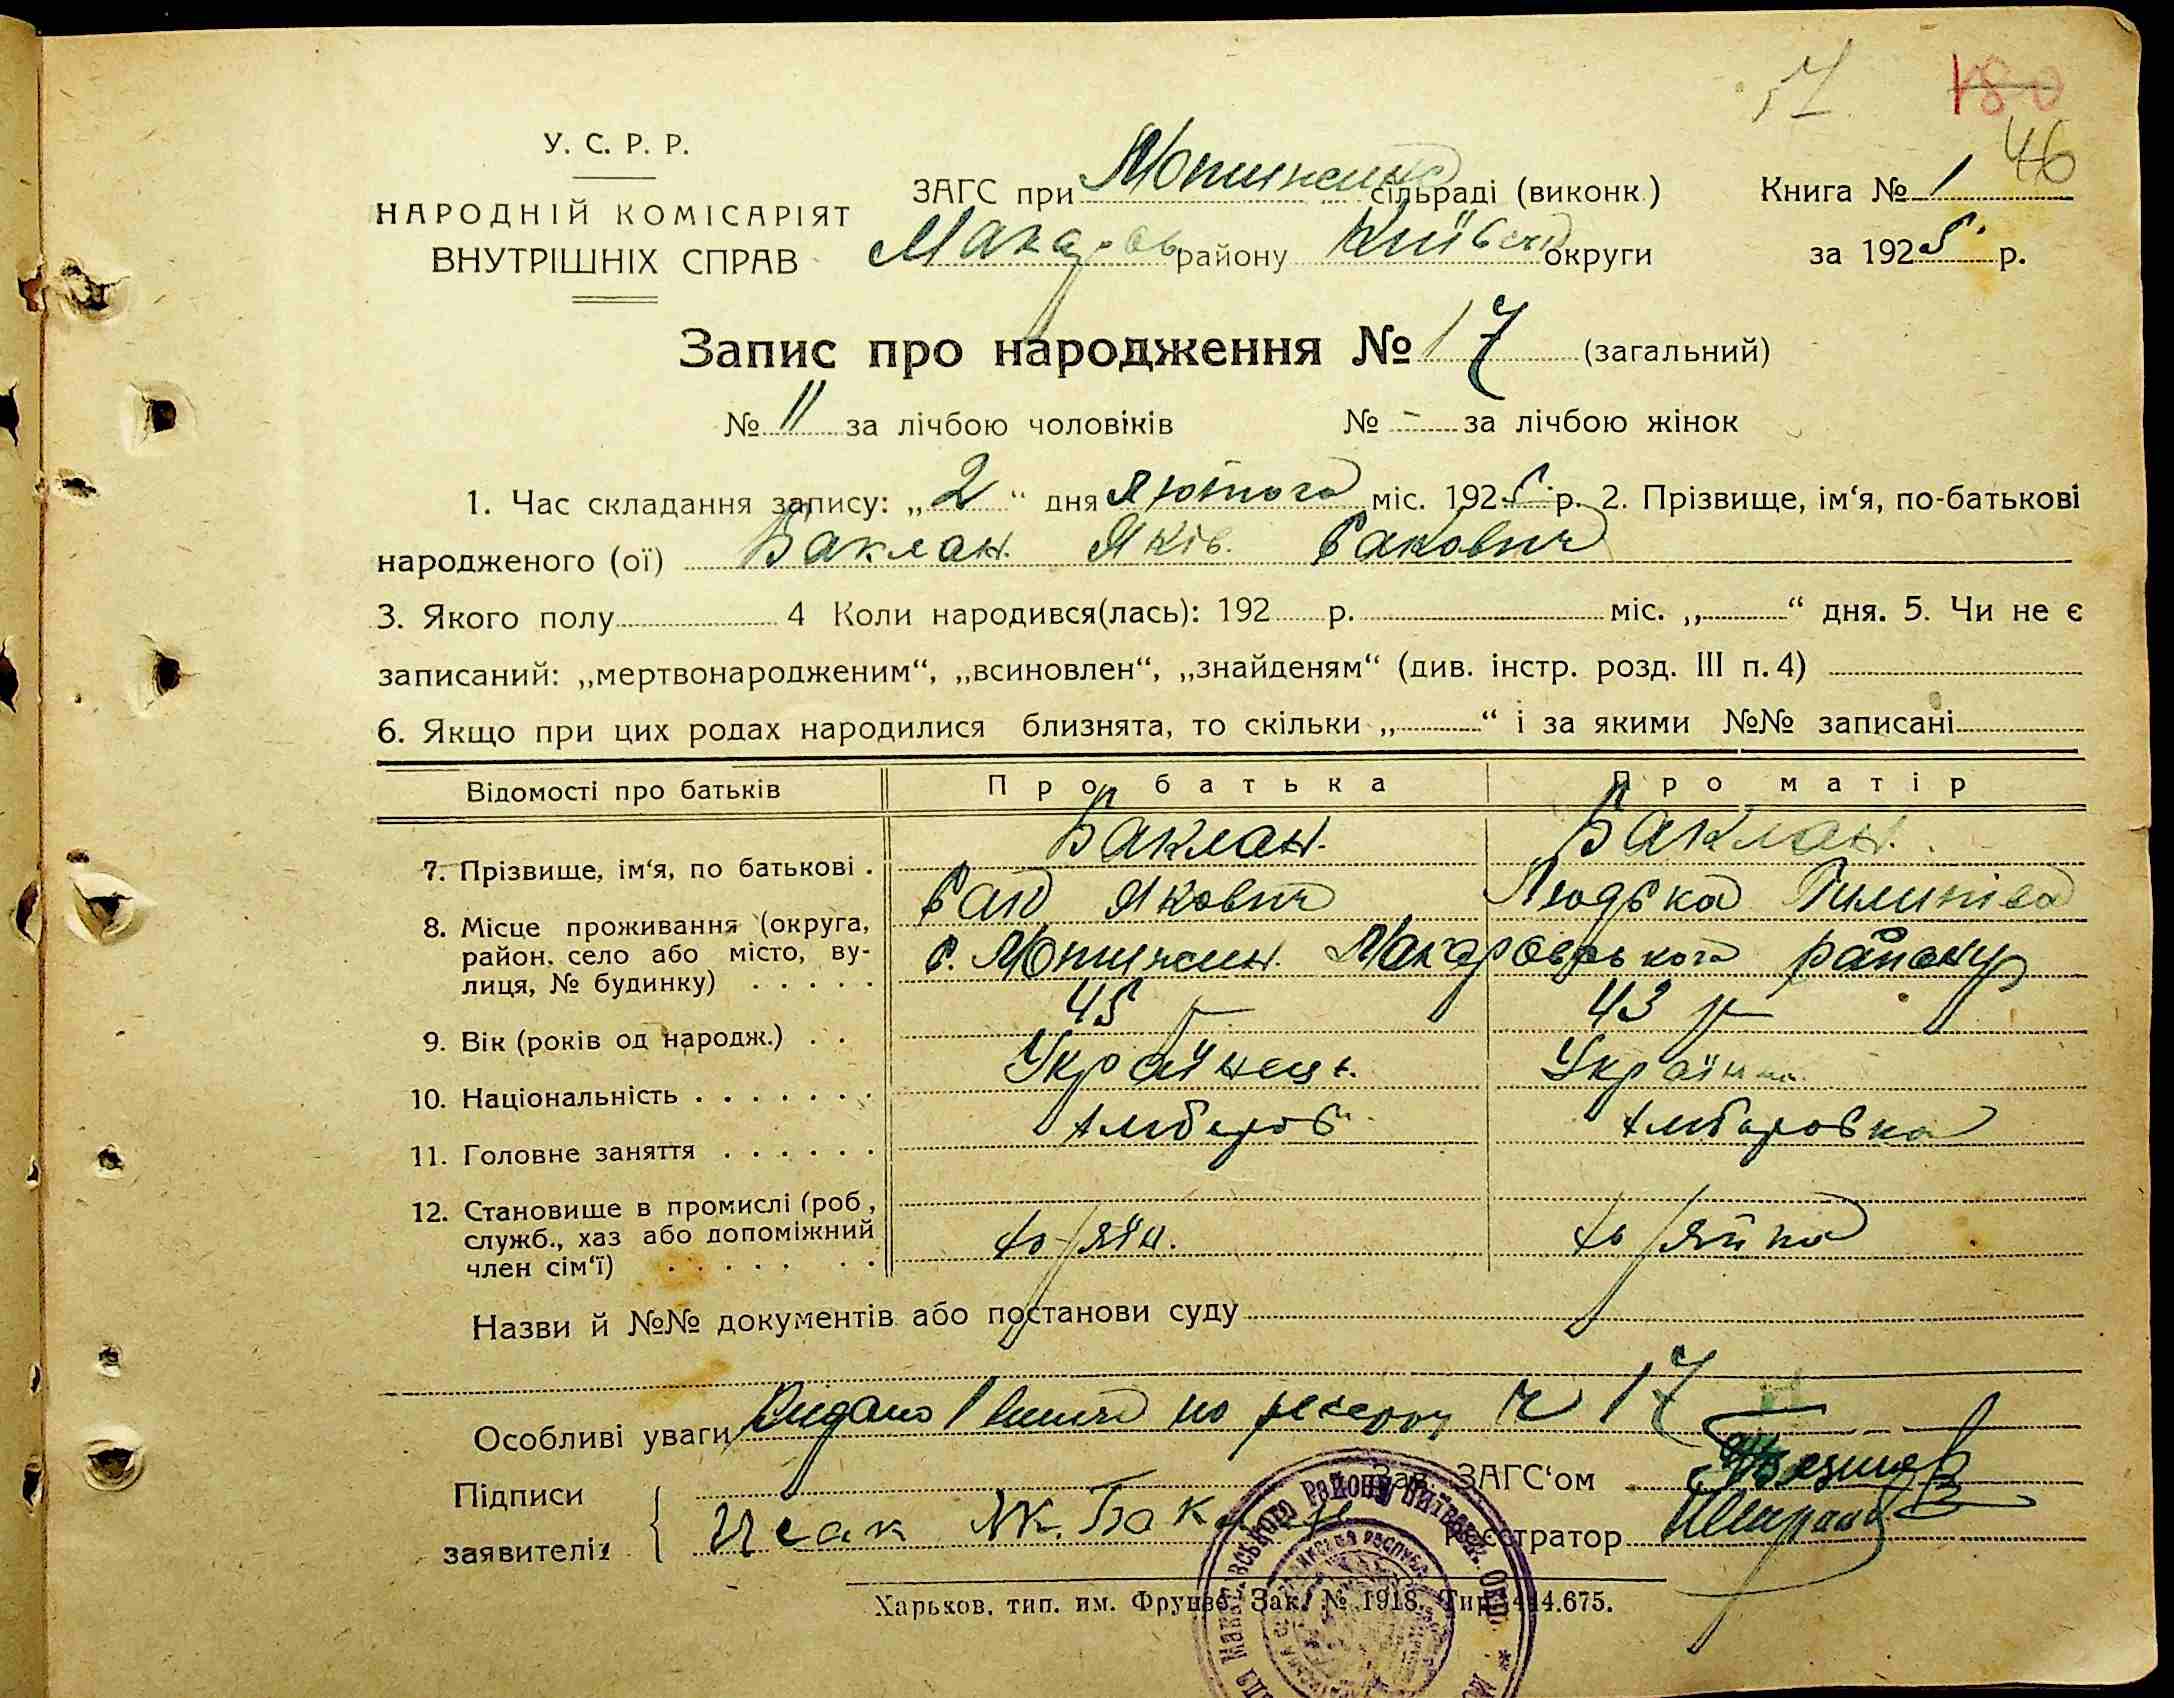 180
46
У. С. Р. Р.
НАРОДНІЙ КОМІСАРІЯТ
ВНУТРІШНІХ СПРАВ
ЗАГС при сільраді (виконк.)
Макарів району Київської округи
Книга № 1
за 1925 р.
Запис про народження № 17 (загальний)
№ 11 за лічбою чоловіків № - за лічбою жінок
1. Час складання запису: „2“ дня Лютого міс. 1925 р. 2. Прізвище, ім‘я, по-батькові
народженого (ої) Баклан Яків
3. Якого полу 4 Коли народився(лась): 192 р. міс. „ “ дня. 5. Чи не є
записаний: „мертвонародженим“, „всиновлен“, „знайденям“ (див. інстр. розд. III п. 4)
6. Якщо при цих родах народилися близнята, то скільки „ “ і за якими №№ записані
Відомості про батьків Про батька Про матір
7. Прізвище, ім‘я, по батькові . Баклан Баклан
Якович
8. Місце проживання (округа,
район, село або місто, ву-
лиця, № будинку) . . . . . с. Мотижин Макаровського району
9. Вік (років од народж.) . . 45 р 43 р
10. Національність . . . . . . . Українець Українка
11. Головне заняття . . . . . . Хлібороб Хлібаробка
12. Становище в промислі (роб.,
служб., хаз або допоміжний
член сім‘ї) . . . . . . .
Назви й №№ документів або постанови суду
Особливі уваги Видано 1 17
Підписи
заявителів Исак Як. Баклан
Зав. ЗАГС‘ом
Реєстратор
Харьков. тип. им. Фрунзе. Зак. № 1918. Тир. 444.675.